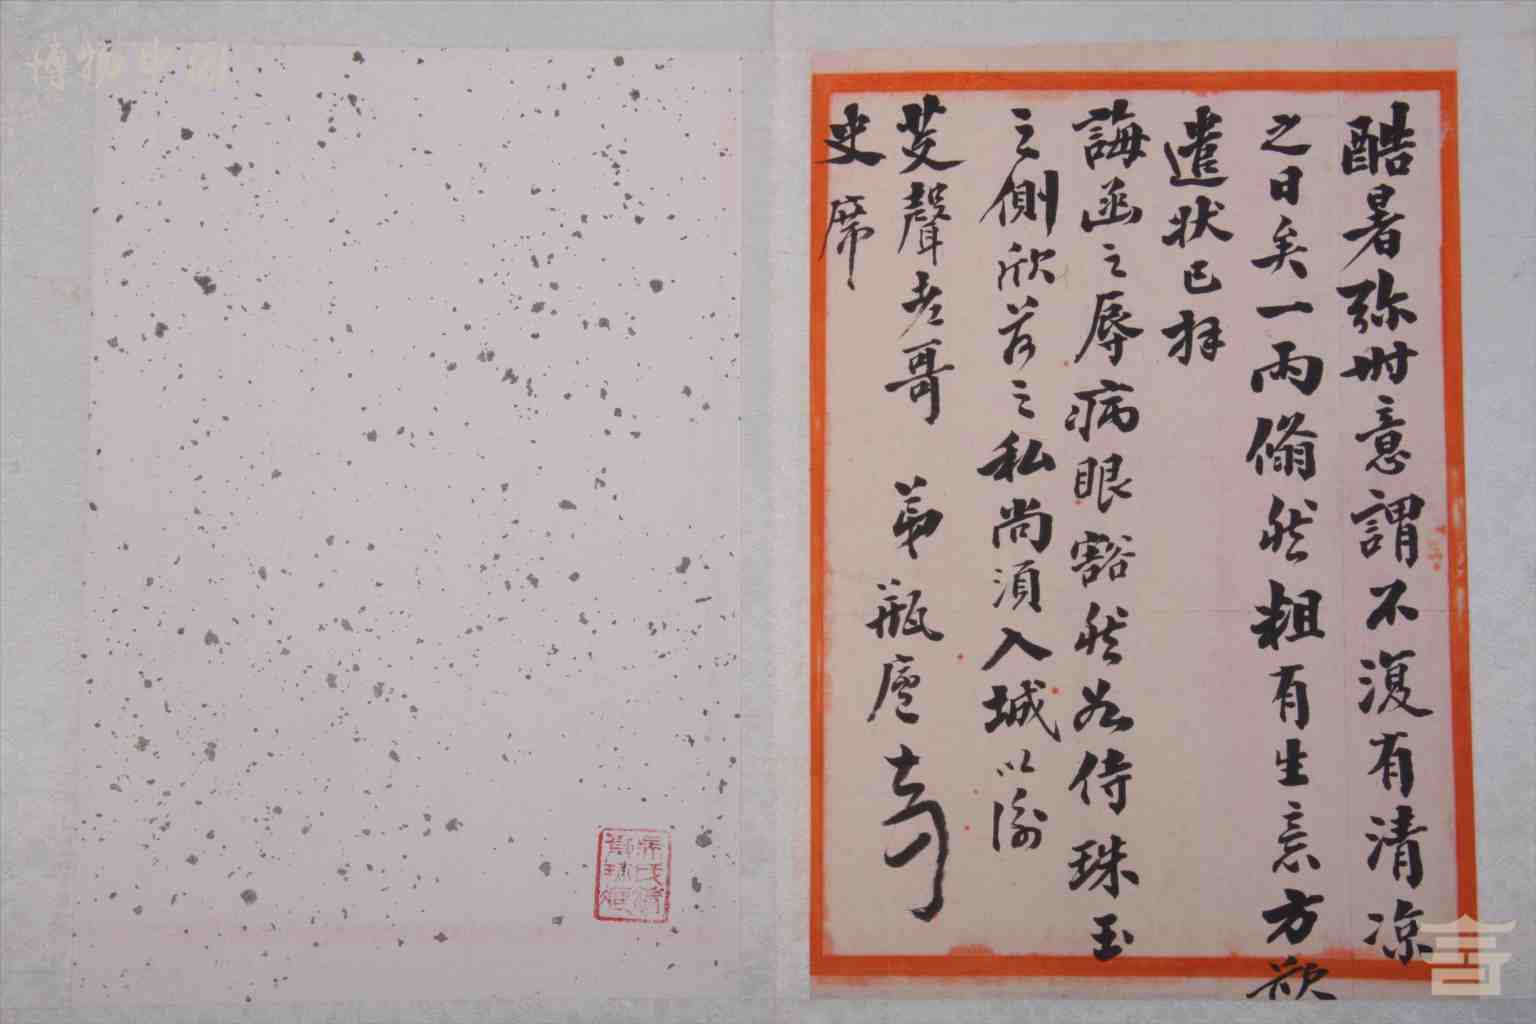 酷暑弥时意謂不復有清涼
之日矣一雨翛然粗有生意方欲
遣状已拜
誨函之辱病眼豁然如侍珠玉
之側欣荷之私尚須入城以
芰聲老哥 弟瓶廬
史席
博物中国